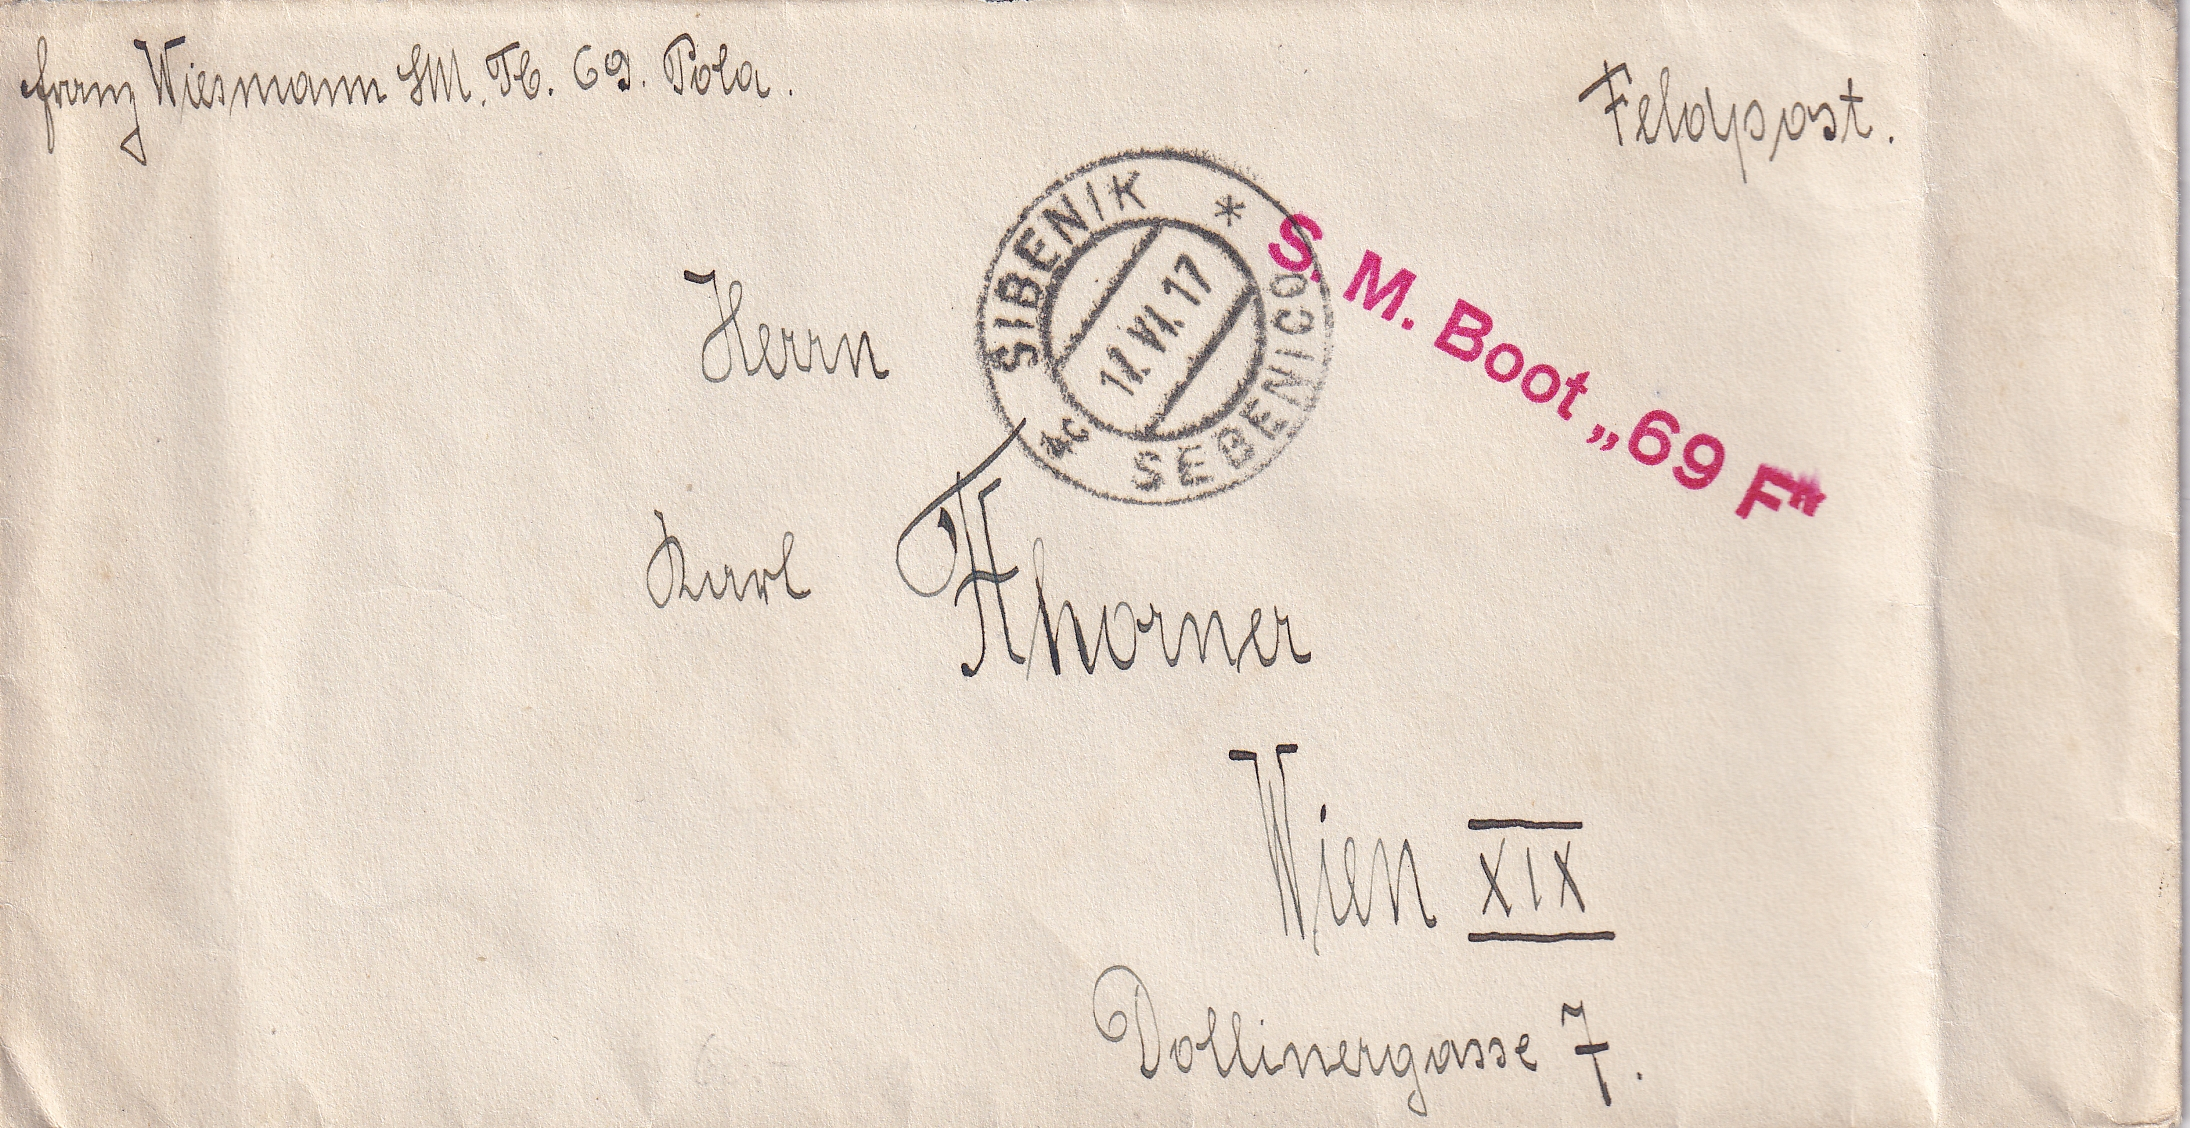 Franz Wiesmann SM. Tb. 69. Pola.
Feldpost.
SIBENIK *
SEBENICO
4c
11.VI.17
S. M. Boot „69 F"
Herrn
Karl Thorner
Wien XIX
Dollinergasse 7.